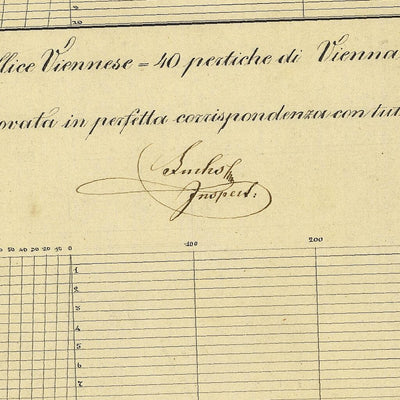 20
llice Viennese = 40 pertiche di Vienna
ovata in perfetta corrispondenza con tut
Inspect:
50 40 30 20 10 0 100 200
1
2
3
4
5
6
7